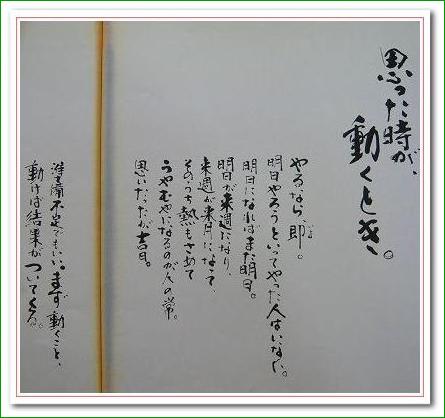 思った時が、
動くとき。
やるなら、即。
いま
明日やろうといってやった人はいない。
明日になればまた明日。
明日が来週になり、
来週が来月になって
そのうち熱もさめて
うやむやになるのが人の常。
思いたったが吉日。
準備不足でもいい。まず動くこと、
動けば結果がついてくる。